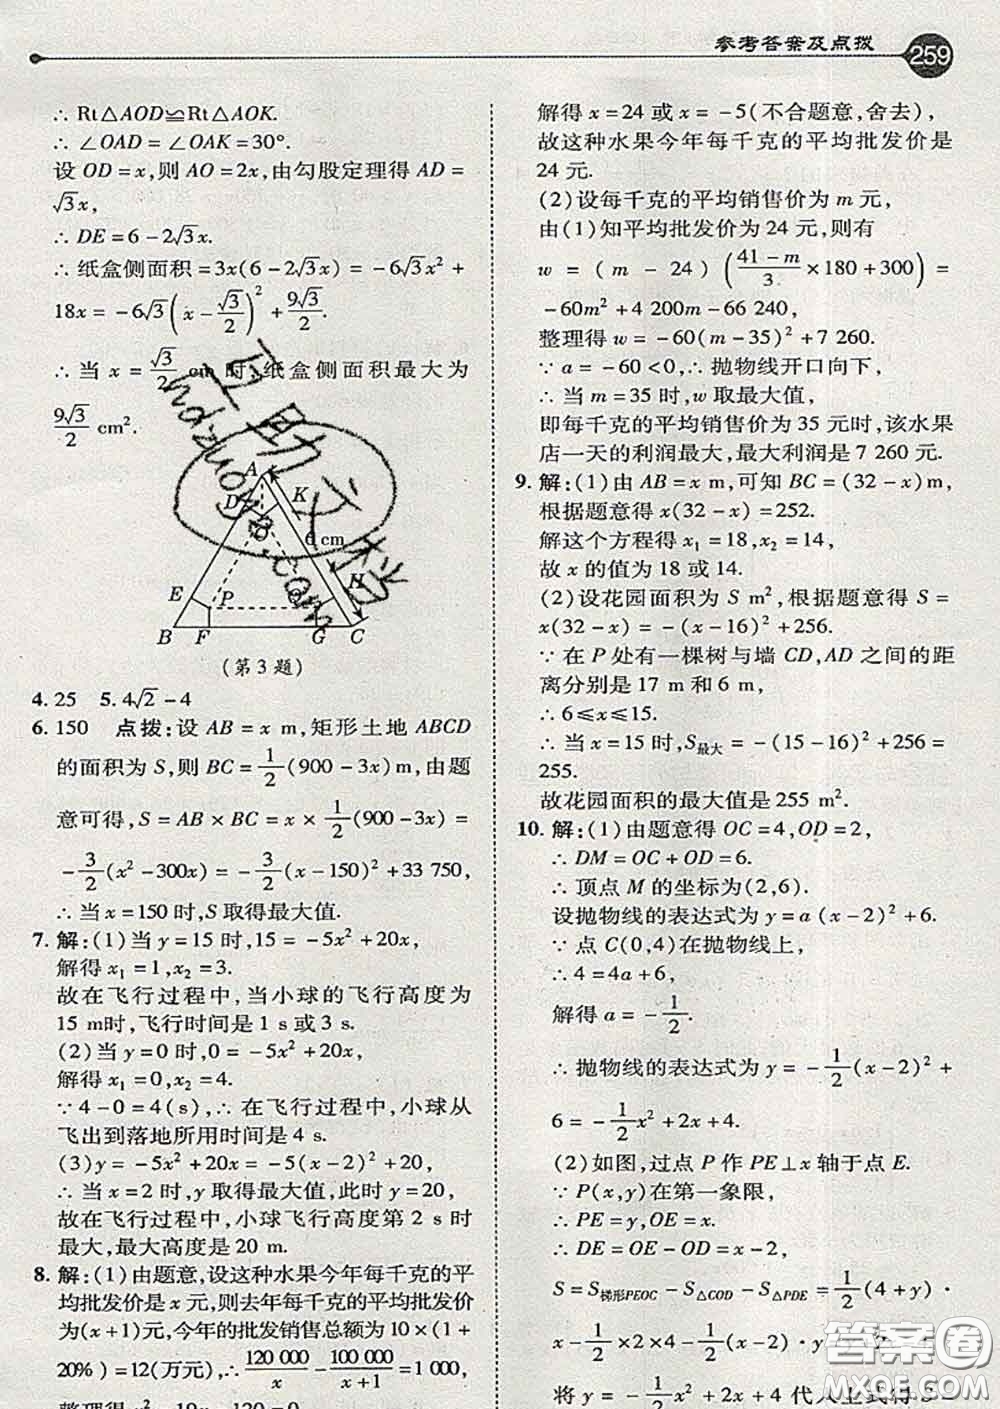 参考答案及点拨 259
∴ Rt△AOD≌Rt△AOK.
∴ ∠OAD = ∠OAK = 30°.
设 OD = x,则 AO = 2x,由勾股定理得 AD =
√3x,
∴ DE = 6 - 2√3x.
∴ 纸盒侧面积 = 3x(6 - 2√3x) = -6√3x² +
18x = -6√3(x - √3/2)² + 9√3/2.
∴ 当 x = √3/2 cm 时,纸盒侧面积最大为
9√3/2 cm².
A
D
K
cm
H
E
P
B F G C
(第 3 题)
4. 25 5. 4√2 - 4
6. 150 点拨:设 AB = x m,矩形土地 ABCD
的面积为 S,则 BC = 1/2(900 - 3x)m,由题
意可得,S = AB × BC = x × 1/2(900 - 3x) =
-3/2(x² - 300x) = -3/2(x - 150)² + 33 750,
∴ 当 x = 150 时,S 取得最大值.
7. 解:(1)当 y = 15 时,15 = -5x² + 20x,
解得 x₁ = 1,x₂ = 3.
故在飞行过程中,当小球的飞行高度为
15 m时,飞行时间是 1 s 或 3 s.
(2)当 y = 0 时,0 = -5x² + 20x,
解得 x₁ = 0,x₂ = 4.
∵ 4 - 0 = 4(s),∴ 在飞行过程中,小球从
飞出到落地所用时间是 4 s.
(3)y = -5x² + 20x = -5(x - 2)² + 20,
∴ 当 x = 2 时,y 取得最大值,此时 y = 20,
故在飞行过程中,小球飞行高度第 2 s 时
最大,最大高度是 20 m.
8. 解:(1)由题意,设这种水果今年每千克的平
均批发价是 x 元,则去年每千克的平均批发价
为(x + 1)元,今年的批发销售总额为 10×(1 +
20%) = 12(万元),∴ 120 000/x - 100 000/(x + 1) = 1 000,
整理得 x² - 19x - 120 = 0
解得 x = 24 或 x = -5(不合题意,舍去),
故这种水果今年每千克的平均批发价是
24 元.
(2)设每千克的平均销售价为 m 元,
由(1)知平均批发价为 24 元,则有
w = (m - 24)((41 - m)/3 × 180 + 300) =
-60m² + 4 200m - 66 240,
整理得 w = -60(m - 35)² + 7 260.
∵ a = -60 < 0,∴ 抛物线开口向下,
∴ 当 m = 35 时,w 取最大值,
即每千克的平均销售价为 35 元时,该水果
店一天的利润最大,最大利润是 7 260 元.
9. 解:(1)由 AB = x m,可知 BC = (32 - x)m,
根据题意得 x(32 - x) = 252.
解这个方程得 x₁ = 18,x₂ = 14,
故 x 的值为 18 或 14.
(2)设花园面积为 S m²,根据题意得 S =
x(32 - x) = -(x - 16)² + 256.
∵ 在 P 处有一棵树与墙 CD,AD 之间的距
离分别是 17 m 和 6 m,
∴ 6≤x≤15.
∴ 当 x = 15 时,S最大 = -(15 - 16)² + 256 =
255.
故花园面积的最大值是 255 m².
10. 解:(1)由题意得 OC = 4,OD = 2,
∴ DM = OC + OD = 6.
∴ 顶点 M 的坐标为(2,6).
设抛物线的表达式为 y = a(x - 2)² + 6.
∵ 点 C(0,4)在抛物线上,
∴ 4 = 4a + 6,
解得 a = -1/2.
∴ 抛物线的表达式为 y = -1/2(x - 2)² +
6 = -1/2x² + 2x + 4.
(2)如图,过点 P 作 PE⊥x 轴于点 E.
∵ P(x,y)在第一象限,
∴ PE = y,OE = x.
∴ DE = OE - OD = x - 2,
S = S梯形PEOC - S△COD - S△PDE = 1/2(4 + y)·
x - 1/2 × 2 × 4 - 1/2(x - 2)·y
将 y = -1/2x² + 2x + 4 代入上式得 S =
答案圈